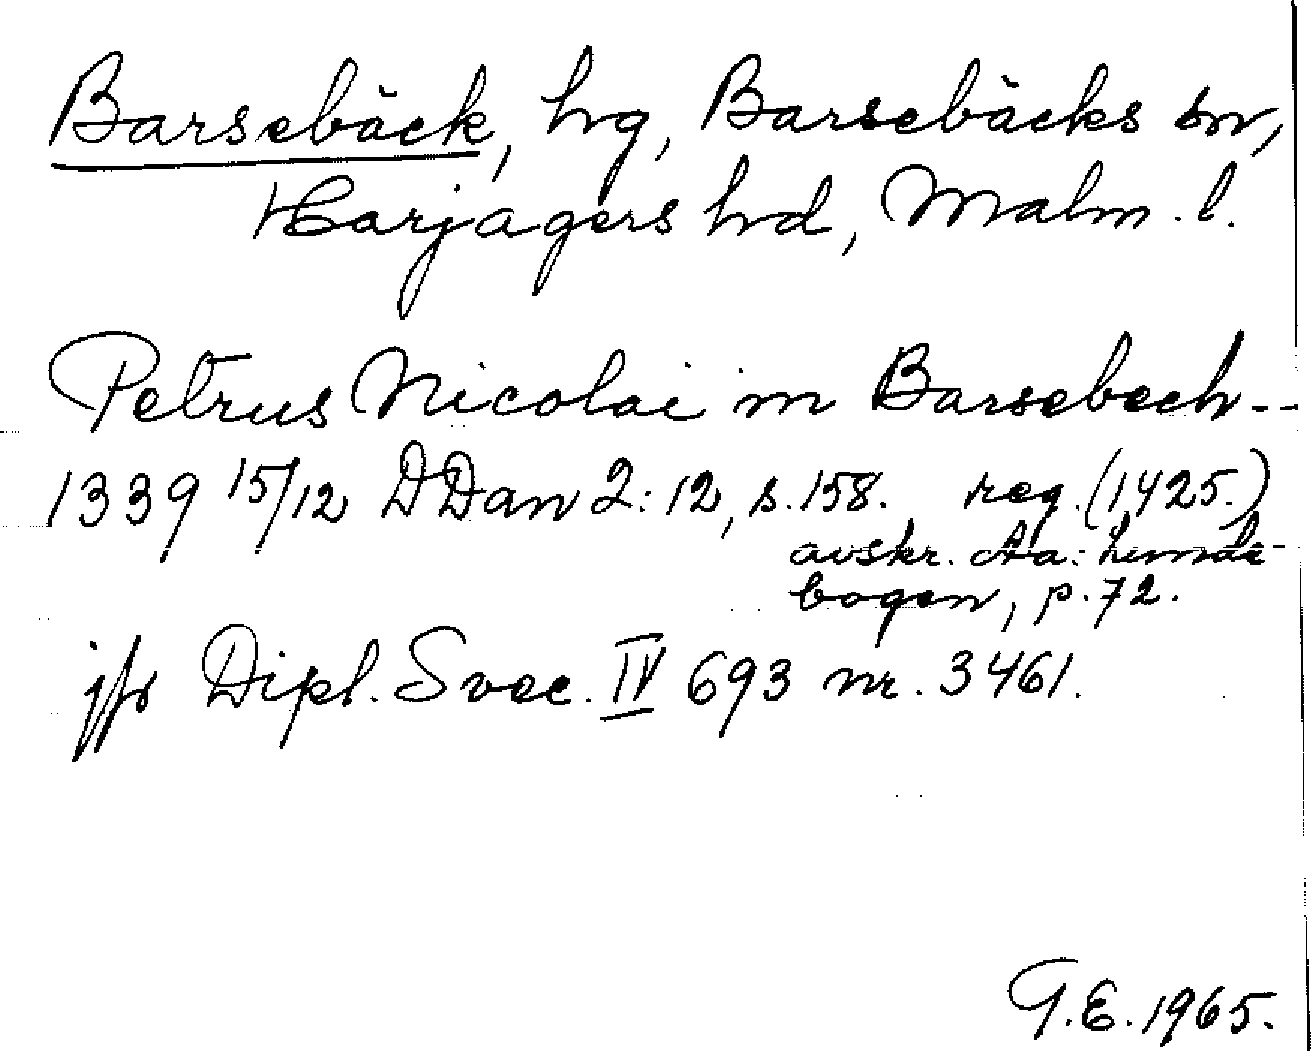 Barsebäck, hg, Barsebäcks sn,
Harjagers hd, Malm. l.
Petrus Nicolai in Barsebech --
1339 15/12 DDan 2:12, s. 158. reg. (1425.)
avskr. Aa:
bogen, p. 72.
jfr Dipl. Svec. IV 693 nr. 3461.
G.E. 1965.